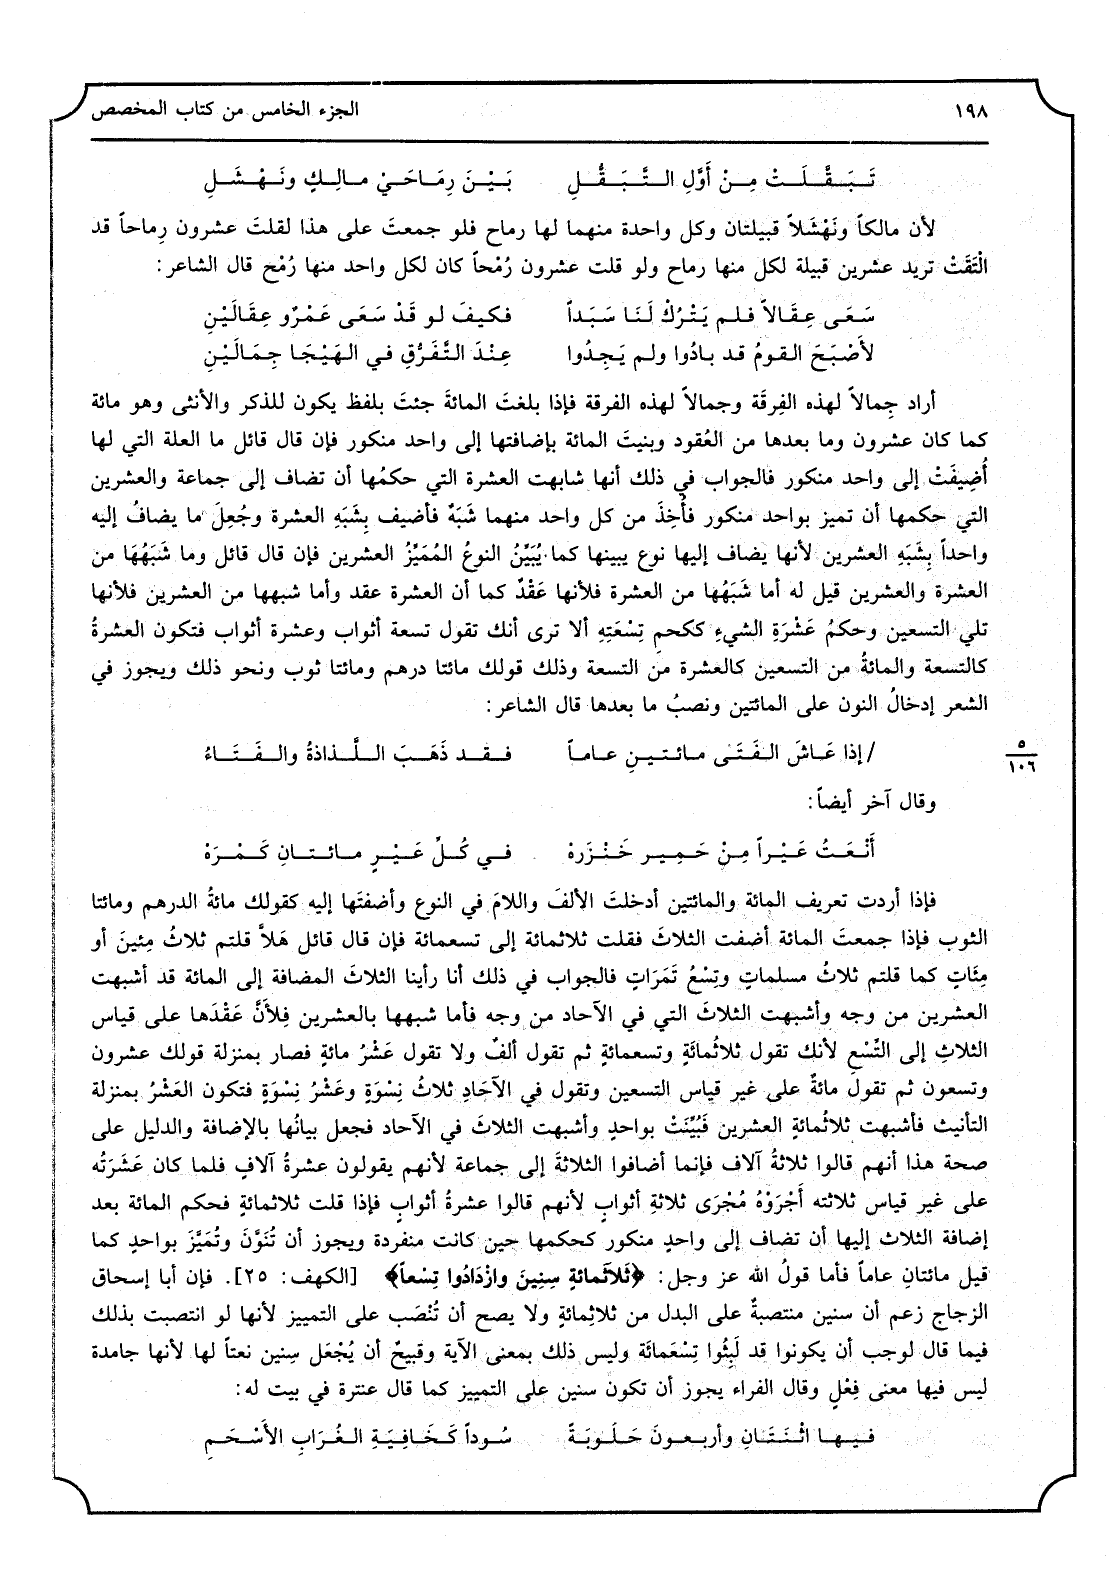 ١٩٨ الجزء الخامس من كتاب المخصص
تَـبَـقَّـلَـتْ مِـنْ أَوَّلِ الـتَّـبَـقُّـلِ بَـيْـنَ رِمَـاحَـيْ مـالِـكٍ ونَـهْـشَـلِ
لأن مالكاً ونَهْشَلاً قبيلتان وكل واحدة منهما لها رماح فلو جمعتَ على هذا لقلتَ عشرون رِماحاً قد
الْتَقَتْ تريد عشرين قبيلة لكل منها رماح ولو قلت عشرون رُمْحاً كان لكل واحد منها رُمْح قال الشاعر:
سَعَى عِقَالاً فلم يَتْرُكْ لَنَا سَبَداً فكيفَ لو قَدْ سَعَى عَمْرٌو عِقَالَيْنِ
لأَصْبَحَ القومُ قد بادُوا ولم يَجِدُوا عِنْدَ التَّفَرُّقِ في الهَيْجَا جِمَالَيْنِ
أراد جِمالاً لهذه الفِرقَة وجمالاً لهذه الفرقة فإذا بلغتَ المائةَ جئتَ بلفظ يكون للذكر والأنثى وهو مائة
كما كان عشرون وما بعدها من العُقود وبنيتَ المائة بإضافتها إلى واحد منكور فإن قال قائل ما العلة التي لها
أُضِيفَتْ إلى واحد منكور فالجواب في ذلك أنها شابهت العشرة التي حكمُها أن تضاف إلى جماعة والعشرين
التي حكمها أن تميز بواحد منكور فأُخِذَ من كل واحد منهما شَبَهٌ فأضيف بِشَبَهِ العشرة وجُعِلَ ما يضافُ إليه
واحداً بِشَبَهِ العشرين لأنها يضاف إليها نوع يبينها كما يُبَيِّنُ النوعُ المُمَيَّزُ العشرين فإن قال قائل وما شَبَهُهَا من
العشرة والعشرين قيل له أما شَبَهُهَا من العشرة فلأنها عَقْدٌ كما أن العشرة عقد وأما شبهها من العشرين فلأنها
تلي التسعين وحكمُ عَشْرَةِ الشيءِ ككحم تِسْعَتِهِ ألا ترى أنك تقول تسعة أثواب وعشرة أثواب فتكون العشرةُ
كالتسعة والمائةُ من التسعين كالعشرة من التسعة وذلك قولك مائتا درهم ومائتا ثوب ونحو ذلك ويجوز في
الشعر إدخالُ النون على المائتين ونصبُ ما بعدها قال الشاعر:
/إذا عَـاشَ الـفَـتَـى مـائـتـيـنِ عـامـاً فـقـد ذَهَـبَ الـلَّـذاذةُ والـفَـتَـاءُ
٥
١٠٦
وقال آخر أيضاً:
أَنْـعَـتُ عَـيْـراً مِـنْ حَـمِـيـر خَـنْـزَرهْ فـي كُـلِّ عَـيْـرٍ مـائـتـانِ كَـمْـرَهْ
فإذا أردت تعريف المائة والمائتين أدخلتَ الألفَ واللامَ في النوع وأضفتَها إليه كقولك مائةُ الدرهم ومائتا
الثوب فإذا جمعتَ المائة أضفت الثلاثَ فقلت ثلاثمائة إلى تسعمائة فإن قال قائل هَلاَّ قلتم ثلاثُ مِئينَ أو
مِئَاتٍ كما قلتم ثلاثُ مسلماتٍ وتِسْعُ تَمَرَاتٍ فالجواب في ذلك أنا رأينا الثلاثَ المضافة إلى المائة قد أشبهت
العشرين من وجه وأشبهت الثلاثَ التي في الآحاد من وجه فأما شبهها بالعشرين فِلأَنَّ عَقْدَها على قياس
الثلاثِ إلى التِّسْعِ لأنك تقول ثلاثُمائَةٍ وتسعمائة ثم تقول ألفٌ ولا تقول عَشْرُ مائةٍ فصار بمنزلة قولك عشرون
وتسعون ثم تقول مائةٌ على غير قياس التسعين وتقول في الآحَادِ ثلاثُ نِسْوَةٍ وعَشْرُ نِسْوَةٍ فتكون العَشْرُ بمنزلة
التأنيث فأشبهت ثلاثُمائةٍ العشرين فَبُيِّنَتْ بواحدٍ وأشبهت الثلاثَ في الآحاد فجعل بيانُها بالإضافة والدليل على
صحة هذا أنهم قالوا ثلاثةُ آلاف فإنما أضافوا الثلاثةَ إلى جماعة لأنهم يقولون عشرةُ آلافٍ فلما كان عَشَرَتُه
على غير قياس ثلاثته أَجْرَوْهُ مُجْرَى ثلاثةِ أثوابٍ لأنهم قالوا عشرةُ أثوابٍ فإذا قلت ثلاثمائةٍ فحكم المائة بعد
إضافة الثلاث إليها أن تضاف إلى واحدٍ منكور كحكمها حين كانت منفردة ويجوز أن تُنَوَّنَ وتُمَيَّزَ بواحدٍ كما
قيل مائتانِ عاماً فأما قولُ الله عز وجل: ﴿ثَلاَثَمائةٍ سِنِينَ وازْدَادُوا تِسْعاً﴾ [الكهف: ٢٥]. فإن أبا إسحاق
الزجاج زعم أن سنين منتصبةٌ على البدل من ثلاثِمائةٍ ولا يصح أن تُنْصَب على التمييز لأنها لو انتصبت بذلك
فيما قال لوجب أن يكونوا قد لَبِثُوا تِسْعَمائَة وليس ذلك بمعنى الآية وقبيحٌ أن يُجْعَل سِنين نعتاً لها لأنها جامدة
ليس فيها معنى فِعْلٍ وقال الفراء يجوز أن تكون سنين على التمييز كما قال عنترة في بيت له:
فـيـهـا اثْـنَـتَـانِ وأربـعـونَ حَـلُـوبَـةً سُـوداً كَـخَـافِـيَـةِ الـغُـرَابِ الأَسْـحَـمِ